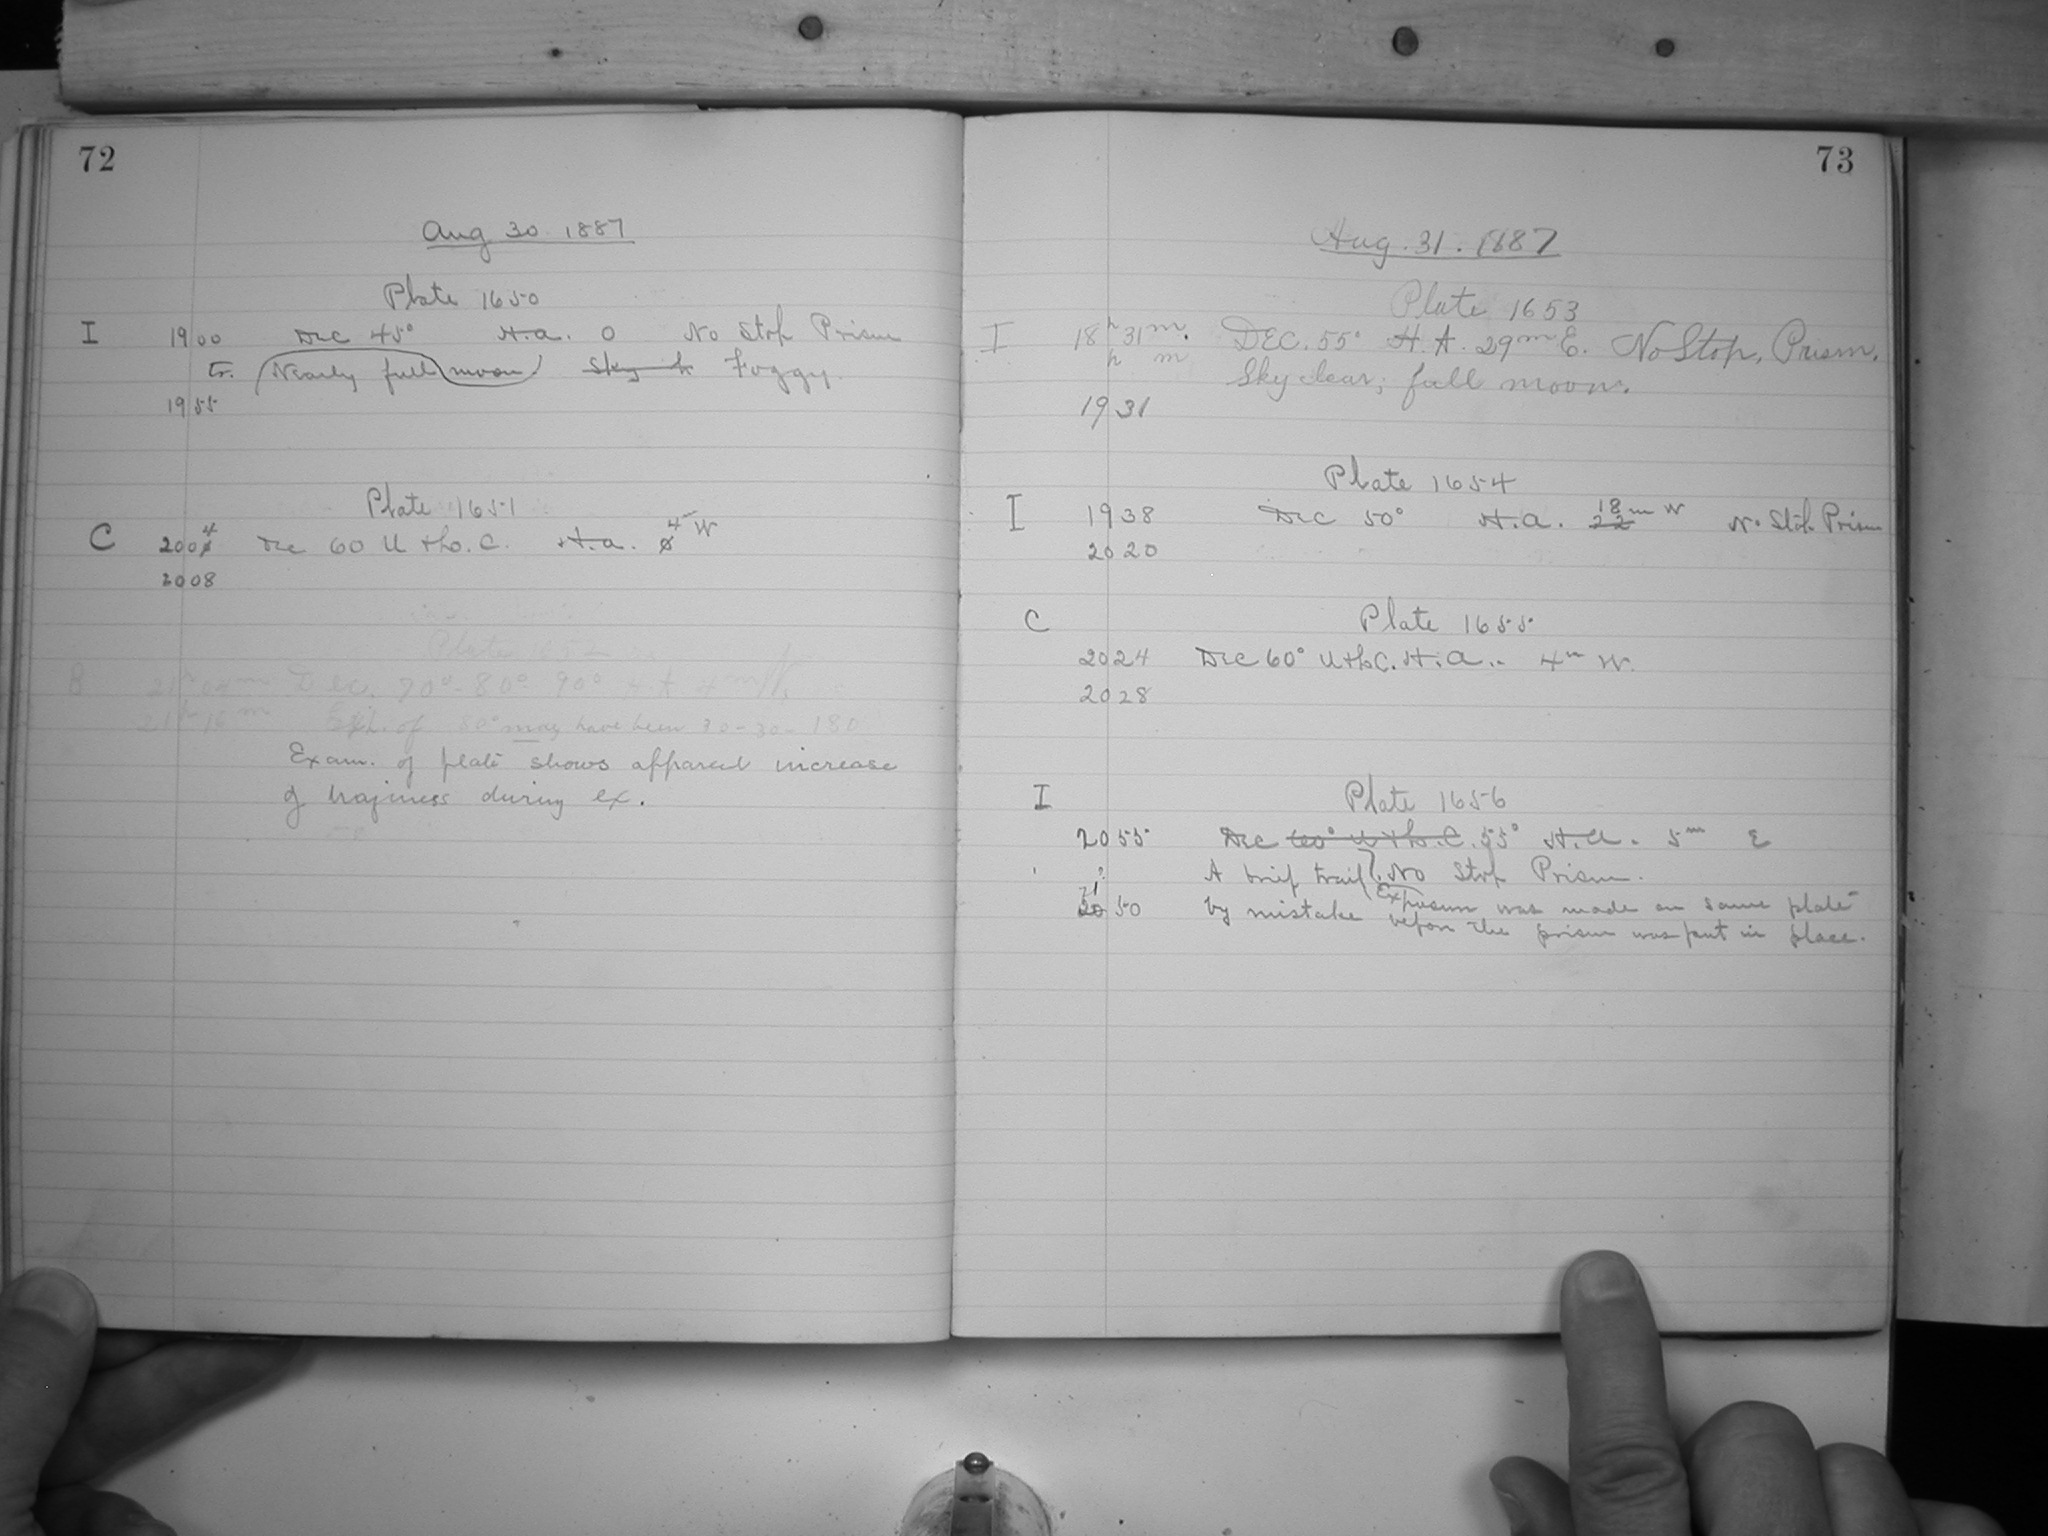 72
Aug 30 1887
Plate 1650
I 19 00 Dec 45° H.a. 0 No Stop Prism
to. Nearly full moon Sky Foggy.
19 55
Plate 1651
C 20 04 Dec 60 U tho. C. H.a. 4 W
20 08
Plate 1652
B 21h 04m Dec. 90°-80° 90° H.A. 4m
of 80° may have been 30-30-180
Exam. of plate shows apparent increase
of haziness during ex.
73
Aug. 31. 1887
Plate 1653
I 18h 31m. DEC. 55° H.A. 29m E. No Stop, Prism.
h m Sky clear; full moon.
19 31
Plate 1654
I 19 38 Dec 50° H.a. 22 18m W No Stop Prism
20 20
C Plate 1655
20 24 Dec 60° U tho C. H.a. 4m W.
20 28
I Plate 1656
20 55 Dec 60° U tho. C. 55° H.a. 5m E
? A brief trail No Stop Prism.
20 21 50 by mistake Exposure was made on same plate
before the prism was put in place.